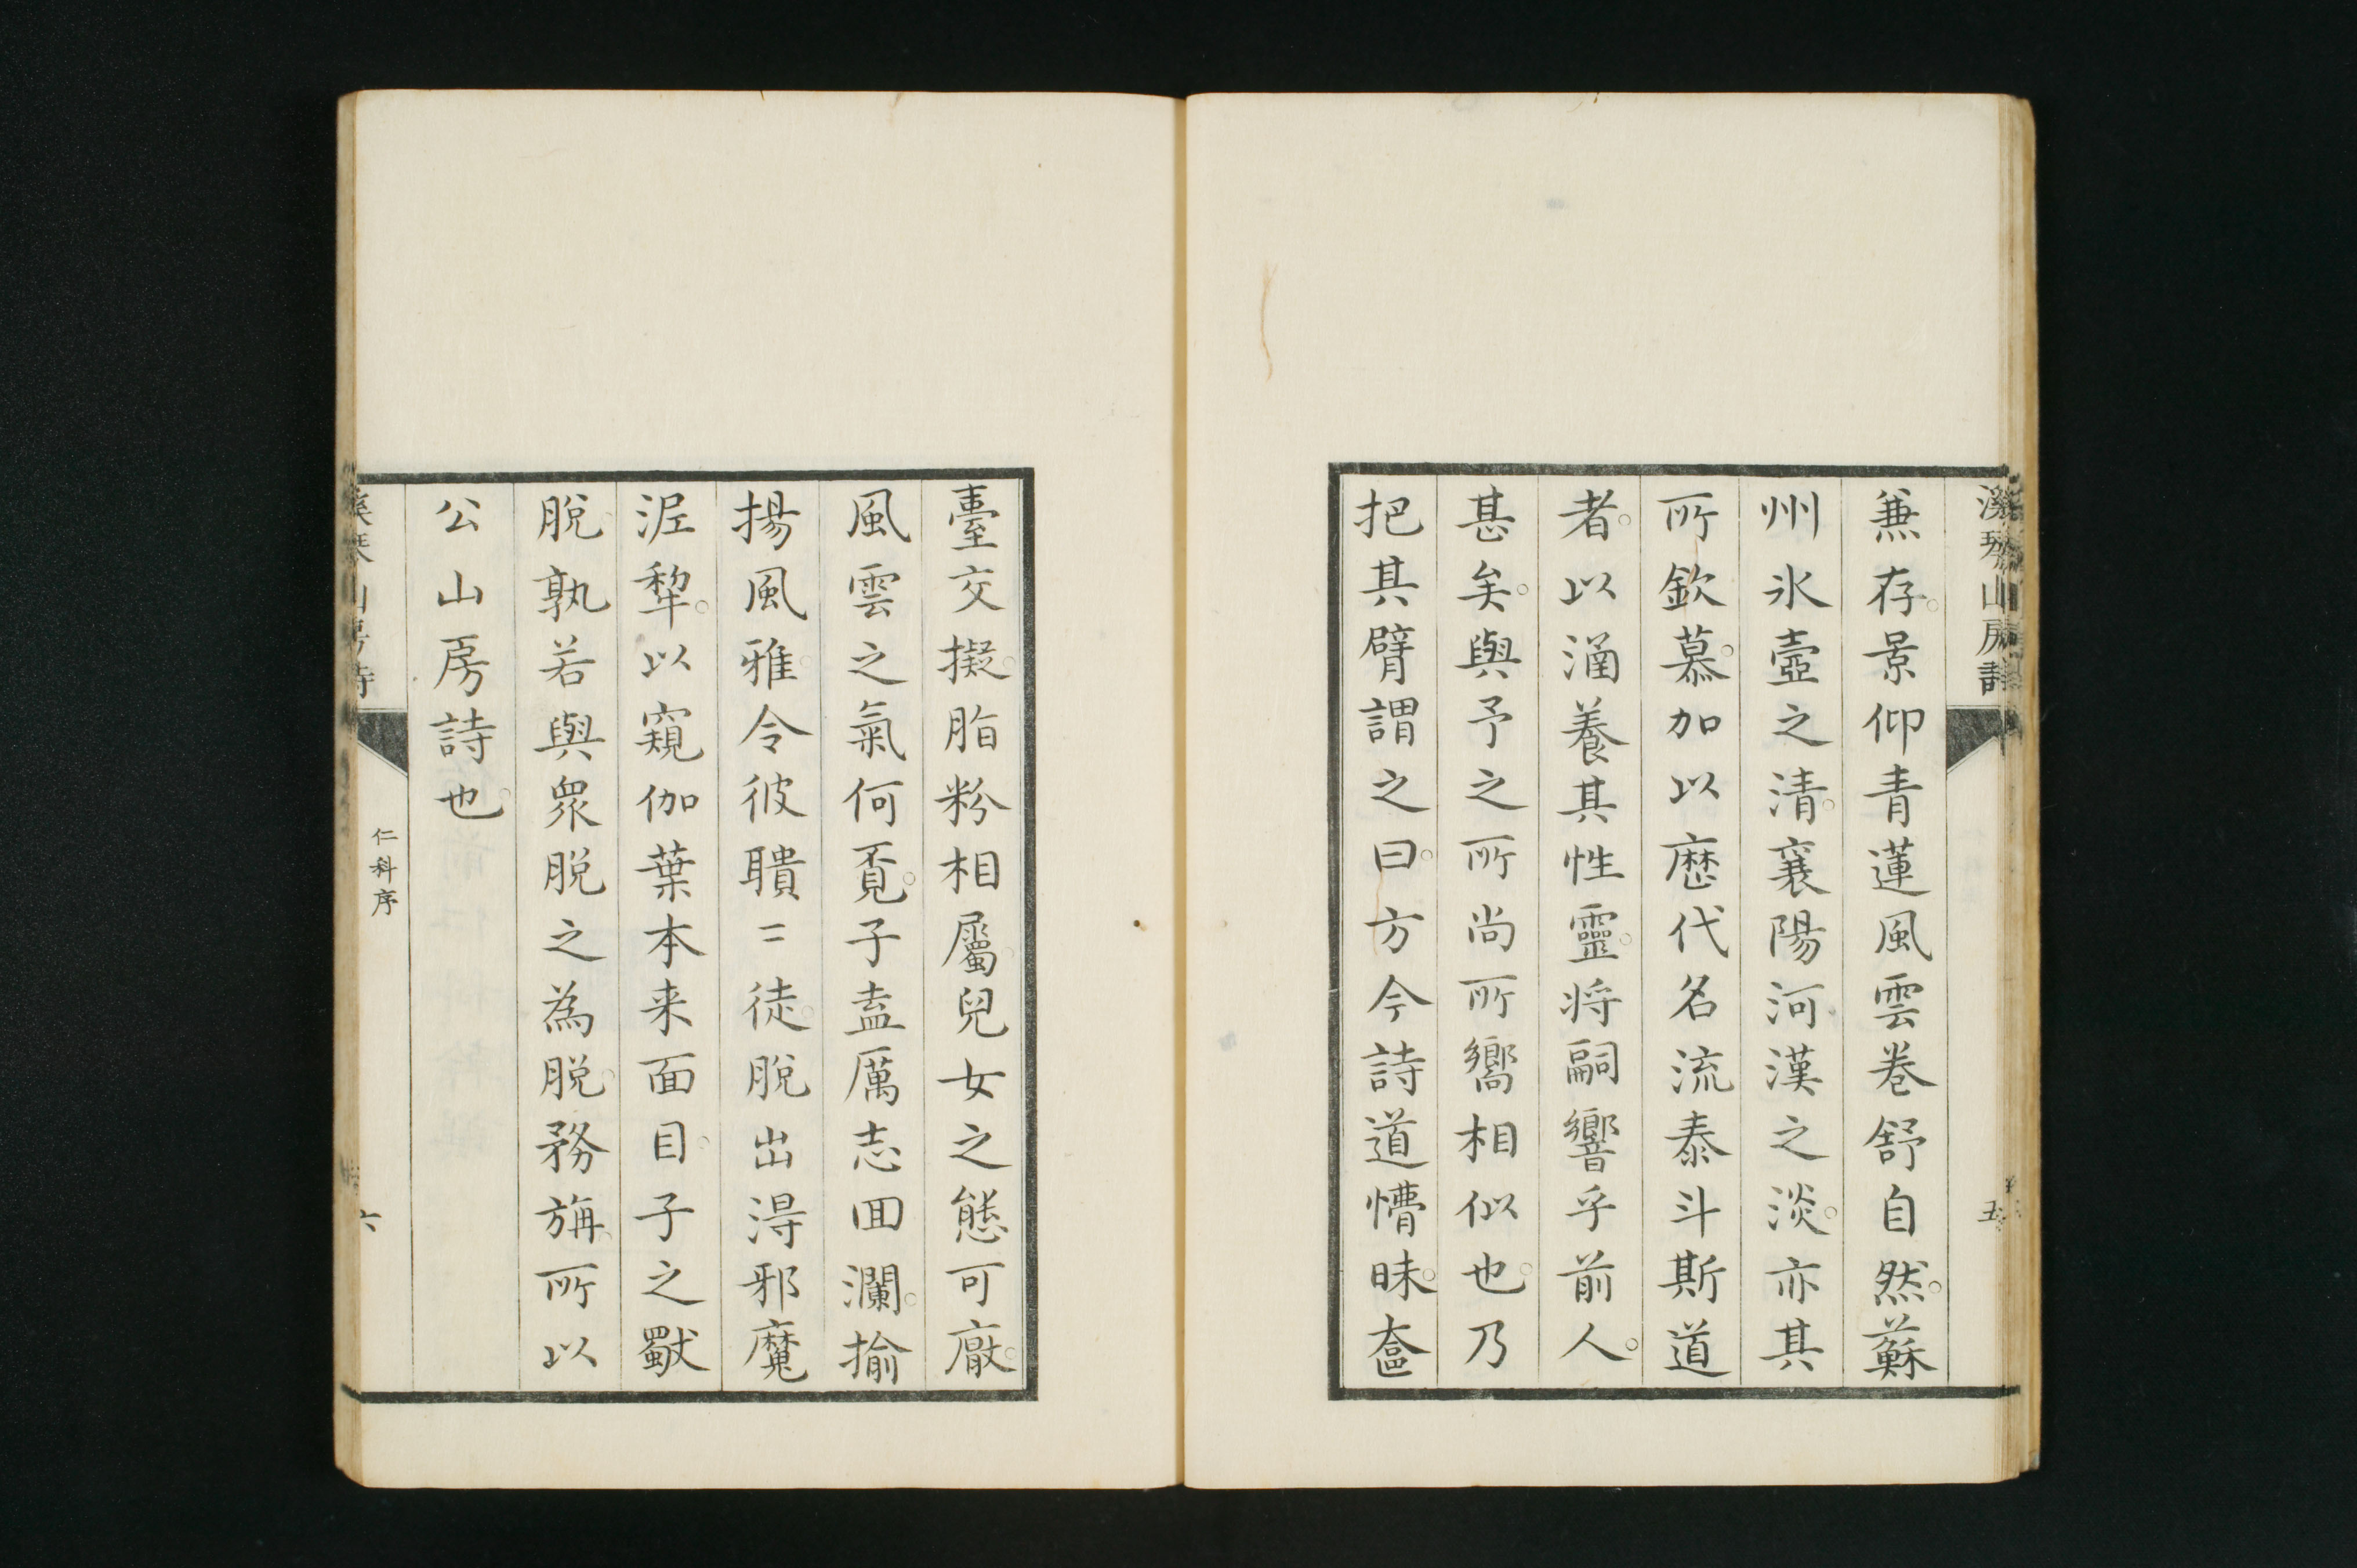 溪琴山房詩
五
兼存。景仰青蓮風雲卷舒自然。蘇
州氷壺之清。襄陽河漢之淡。亦其
所欽慕。加以歴代名流泰斗斯道
者。以涵養其性靈。将嗣響乎前人。
甚矣。與予之所尚所嚮相似也。乃
把其臂謂之曰。方今詩道懵昧。奩
臺交擬。脂粉相屬。兒女之態可厭。
風雲之氣何覔。子盍厲志回瀾。揄
揚風雅。令彼聵〻徒。脱出淂邪魔
泥犂。以窺伽葉本来面目。子之獣
脱。孰若與衆脱之為脱。務旃。所以
公山房詩也。
溪琴山房詩
仁科序
六